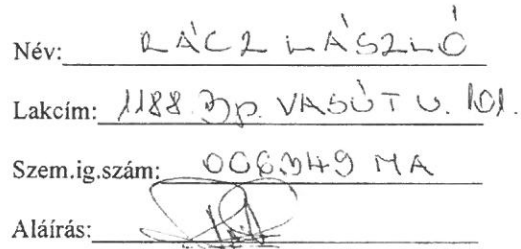 Név: RÁCZ LÁSZLÓ
Lakcím: 1188 Bp. VASÚT U. 101.
Szem.ig.szám: 006349 MA
Aláírás: